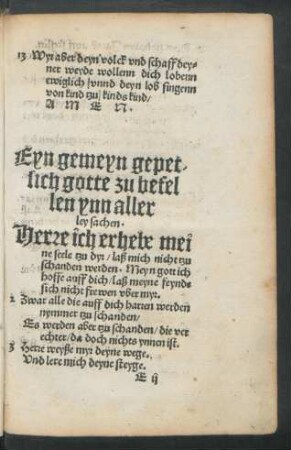 13 Wyr aber deyn volck vnd schaff dey-
ner weyde wollenn dich lobenn
ewiglich/vnnd deyn loß singenn
von kind tzu kinds kind/
A M E N.
Eyn gemeyn gepet-
lich gotte zu befel
len ynn aller
ley sachen.
Herre ich erhebe mei
ne seele zu dyr/laß mich nicht zu
schanden werden. Meyn gott ich
hoffe auff dich/laß meyne feynds
sich nicht frewen vber myr.
2 Zwar alle die auff dich harren werden
nymmer tzu schanden/
Es werden aber tzu schanden/die ver
echter/da doch nichts ynnen ist.
3 Herre weyße myr deyne wege.
Vnd lere mich deyne steyge.
E ij